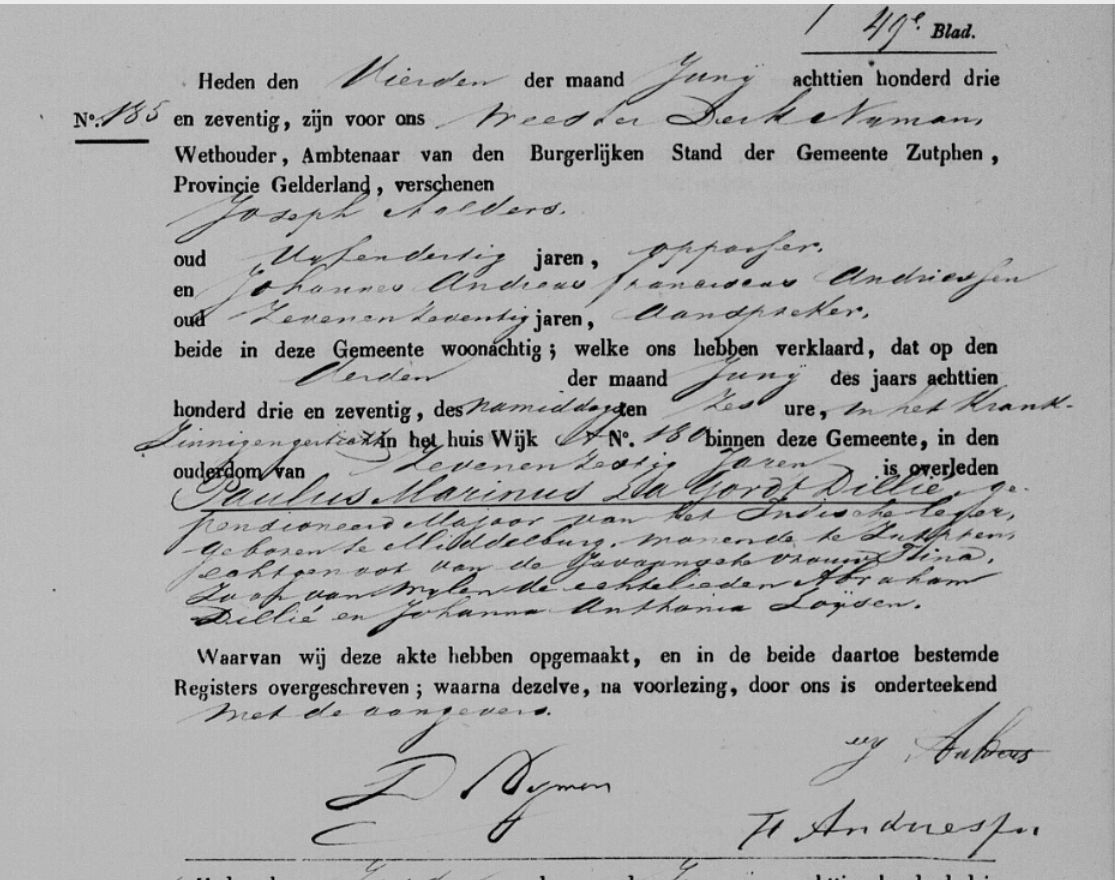 49e. Blad.
Heden den Vierden der maand Junij achttien honderd drie
No. 185 en zeventig, zijn voor ons Meester Derk Nyman,
Wethouder, Ambtenaar van den Burgerlijken Stand der Gemeente Zutphen,
Provincie Gelderland, verschenen
Joseph Aalders.
oud Vyfendertig jaren, oppasser,
en Johannes Andreas franciscus Andriessen
oud Zevenenzeventig jaren, Aanspreker,
beide in deze Gemeente woonachtig; welke ons hebben verklaard, dat op den
der maand Junij des jaars achttien
honderd drie en zeventig, des namiddags ten Zes ure, in het Krank-
zinnigengesticht in het huis Wijk A No. 180 binnen deze Gemeente, in den
ouderdom van Zevenenzestig Jaren is overleden
Paulus Marinus La Gordt Dillié, ge-
pensioneerd Majoor van het Indische leger,
geboren te Middelburg, wonende te Zutphen,
echtgenoot van de Javaansche vrouw Flina,
Zoon van wylen de echtelieden Abraham
Dillié en Johanna Anthonia Loÿsen.
Waarvan wij deze akte hebben opgemaakt, en in de beide daartoe bestemde
Registers overgeschreven; waarna dezelve, na voorlezing, door ons is onderteekend
met de aangevers.
D Nyman
Aalders
Andriessen